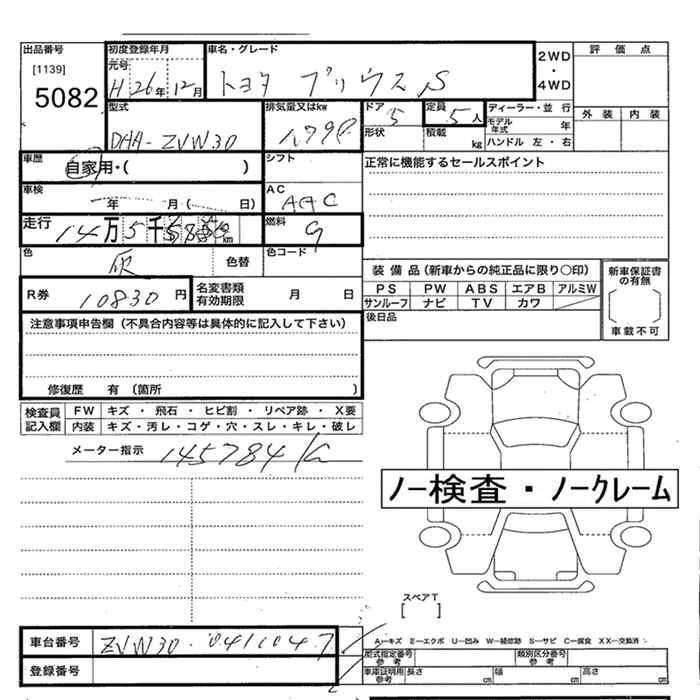 出品番号
[1139]
5082
初度登録年月
元号
H 26年 12月
車名・グレード
トヨタ プリウス S
2WD
・
4WD
評価点
外装 内装
型式
DAA-ZVW30
排気量又はkw
1790
ドア 5
形状
定員 5人
積載 kg
ディーラー・並行
モデル年式 年
ハンドル 左・右
車歴
自家用・( )
シフト
正常に機能するセールスポイント
車検
年 月( 日)
AC
AAC
走行
14万5千 km
燃料
G
色
灰
色替
色コード
R券
10830円
名変書類有効期限 月 日
装備品(新車からの純正品に限り○印)
PS PW ABS エアB アルミW
サンルーフ ナビ TV カワ
新車保証書の有無
車載不可
後日品
注意事項申告欄(不具合内容等は具体的に記入して下さい)
修復歴 有(箇所 )
検査員記入欄
FW キズ・飛石・ヒビ割・リペア跡・X要
内装 キズ・汚レ・コゲ・穴・スレ・キレ・破レ
メーター指示 145784 K
ノー検査・ノークレーム
スペアT
[ ]
車台番号 ZVW30-0411047
登録番号
A―キズ E―エクボ U―凹み W―補修跡 S―サビ C―腐食 XX―交換済
型式指定番号 参考
類別区分番号 参考
車庫証明用 参考
長さ cm 幅 cm 高さ cm